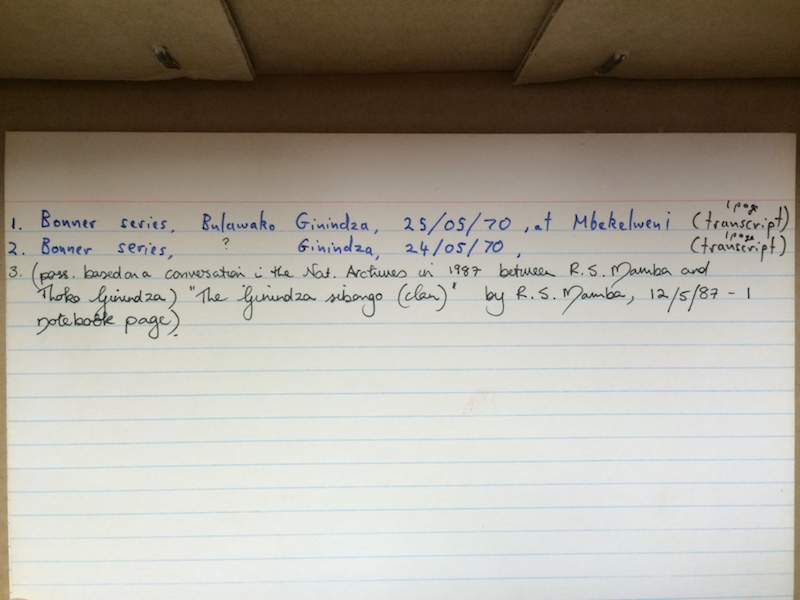 1 page
1. Bonner series, Bulawako Ginindza, 25/05/70, at Mbekelweni (transcript)
1 page
2. Bonner series, ? Ginindza, 24/05/70, (transcript)
3. (poss. based on a conversation in the Nat. Archives in 1987 between R.S. Mamba and
Thoko Ginindza) "The Ginindza sibongo (clan)" by R.S. Mamba, 12/5/87 - 1
notebook page).